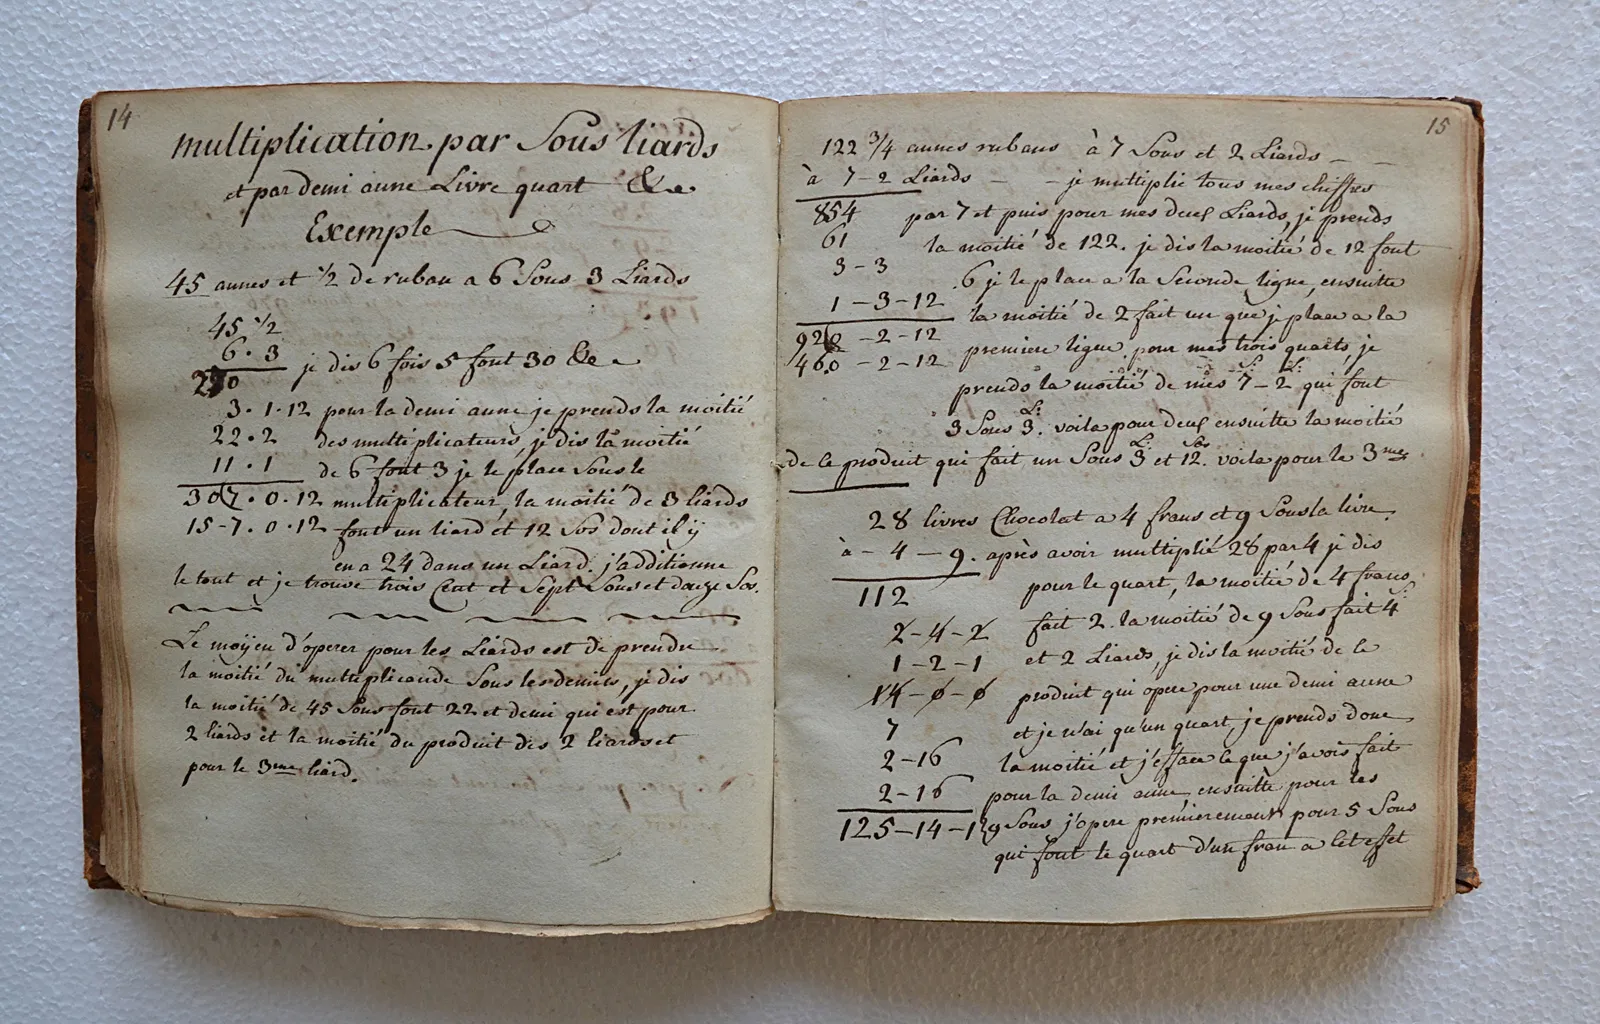 14
multiplication par Sous liards
et par demi aune Livre quart &c
Exemple
45 aunes et 1/2 de ruban a 6 Sous 3 Liards
45 1/2
6 · 3 je dis 6 fois 5 font 30 &c
270
3 · 1 · 12 pour la demi aune je prends la moitié
22 · 2 des multiplicateurs, je dis la moitié
11 · 1 de 6 font 3 je le place Sous le
307 · 0 · 12 multiplicateur, la moitié de 3 liards
15 - 7 · 0 · 12 font un liard et 12 Sos dont il ÿ
en a 24 dans un Liard. j'additionne
le tout et je trouve trois Cent et Sept Sous et douze Sos.
Le moÿen d'operer pour les Liards est de prendre
la moitié du multiplicande Sous les demies, je dis
la moitié de 45 Sous font 22 et demi qui est pour
2 liards et la moitié du produit des 2 liards et
pour le 3me liard.
15
122 3/4 aunes rubans à 7 Sous et 2 Liards - -
à 7 - 2 Liards - - je multiplie tous mes chiffres
854 par 7 et puis pour mes deux Liards, je prends
61 la moitié de 122. je dis la moitié de 12 font
3 - 3 6 je le place a la Seconde ligne, ensuitte
1 - 3 - 12 la moitié de 2 fait un que je place a la
920 - 2 - 12 premiere ligne. pour mes trois quarts, je
460 - 2 - 12 prends la moitié de mes 7 S: - 2 L: qui font
3 Sous 3 L:. voila pour deux ensuitte la moitié
de ce produit qui fait un Sous 3 L: et 12 Sos. voila pour le 3mes
28 livres Chocolat a 4 frans et 9 Sous la livre
à - 4 - 9. après avoir multiplié 28 par 4 je dis
112 pour le quart, la moitié de 4 frans
2 - 4 - 2 fait 2. la moitié de 9 Sous fait 4 S:
1 - 2 - 1 et 2 Liards, je dis la moitié de le
14 - 0 - 0 produit qui opere pour une demi aune
7 et je n'ai qu'un quart je prends donc
2 - 16 la moitié et j'efface ce que j'avois fait
2 - 16 pour la demi aune ensuitte pour les
125 - 14 - 1 9 Sous j'opere premierement pour 5 Sous
qui font le quart d'un fran a cet effet